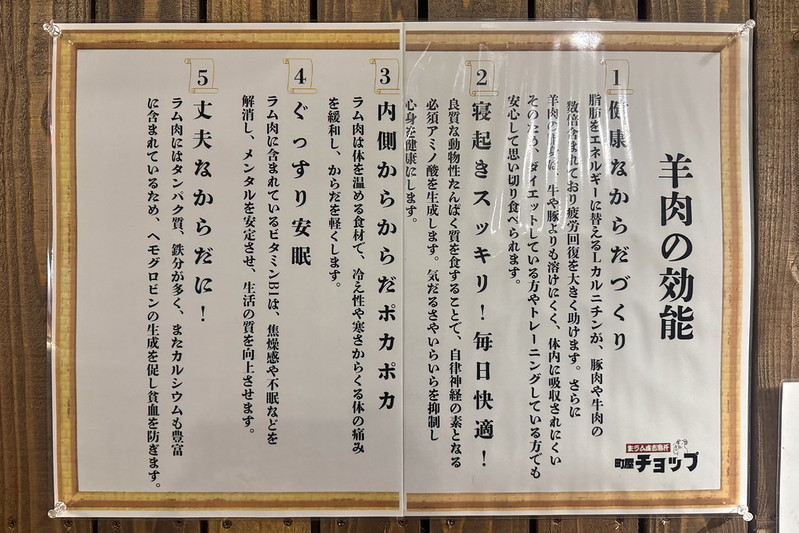 羊肉の効能
1
健康なからだづくり
脂肪をエネルギーに替えるLカルニチンが、豚肉や牛肉の
数倍含まれており疲労回復を大きく助けます。さらに
羊肉の脂身は、牛や豚よりも溶けにくく、体内に吸収されにくい
そのため、ダイエットしている方やトレーニングしている方でも
安心して思い切り食べられます。
2
寝起きスッキリ！毎日快適！
良質な動物性たんぱく質を食することで、自律神経の素となる
必須アミノ酸を生成します。気だるさやいらいらを抑制し
心身を健康にします。
3
内側からからだポカポカ
ラム肉は体を温める食材で、冷え性や寒さからくる体の痛み
を緩和し、からだを軽くします。
4
ぐっすり安眠
ラム肉に含まれているビタミンB1は、焦燥感や不眠などを
解消し、メンタルを安定させ、生活の質を向上させます。
5
丈夫なからだに！
ラム肉にはタンパク質、鉄分が多く、またカルシウムも豊富
に含まれているため、ヘモグロビンの生成を促し貧血を防ぎます。
町屋チョップ